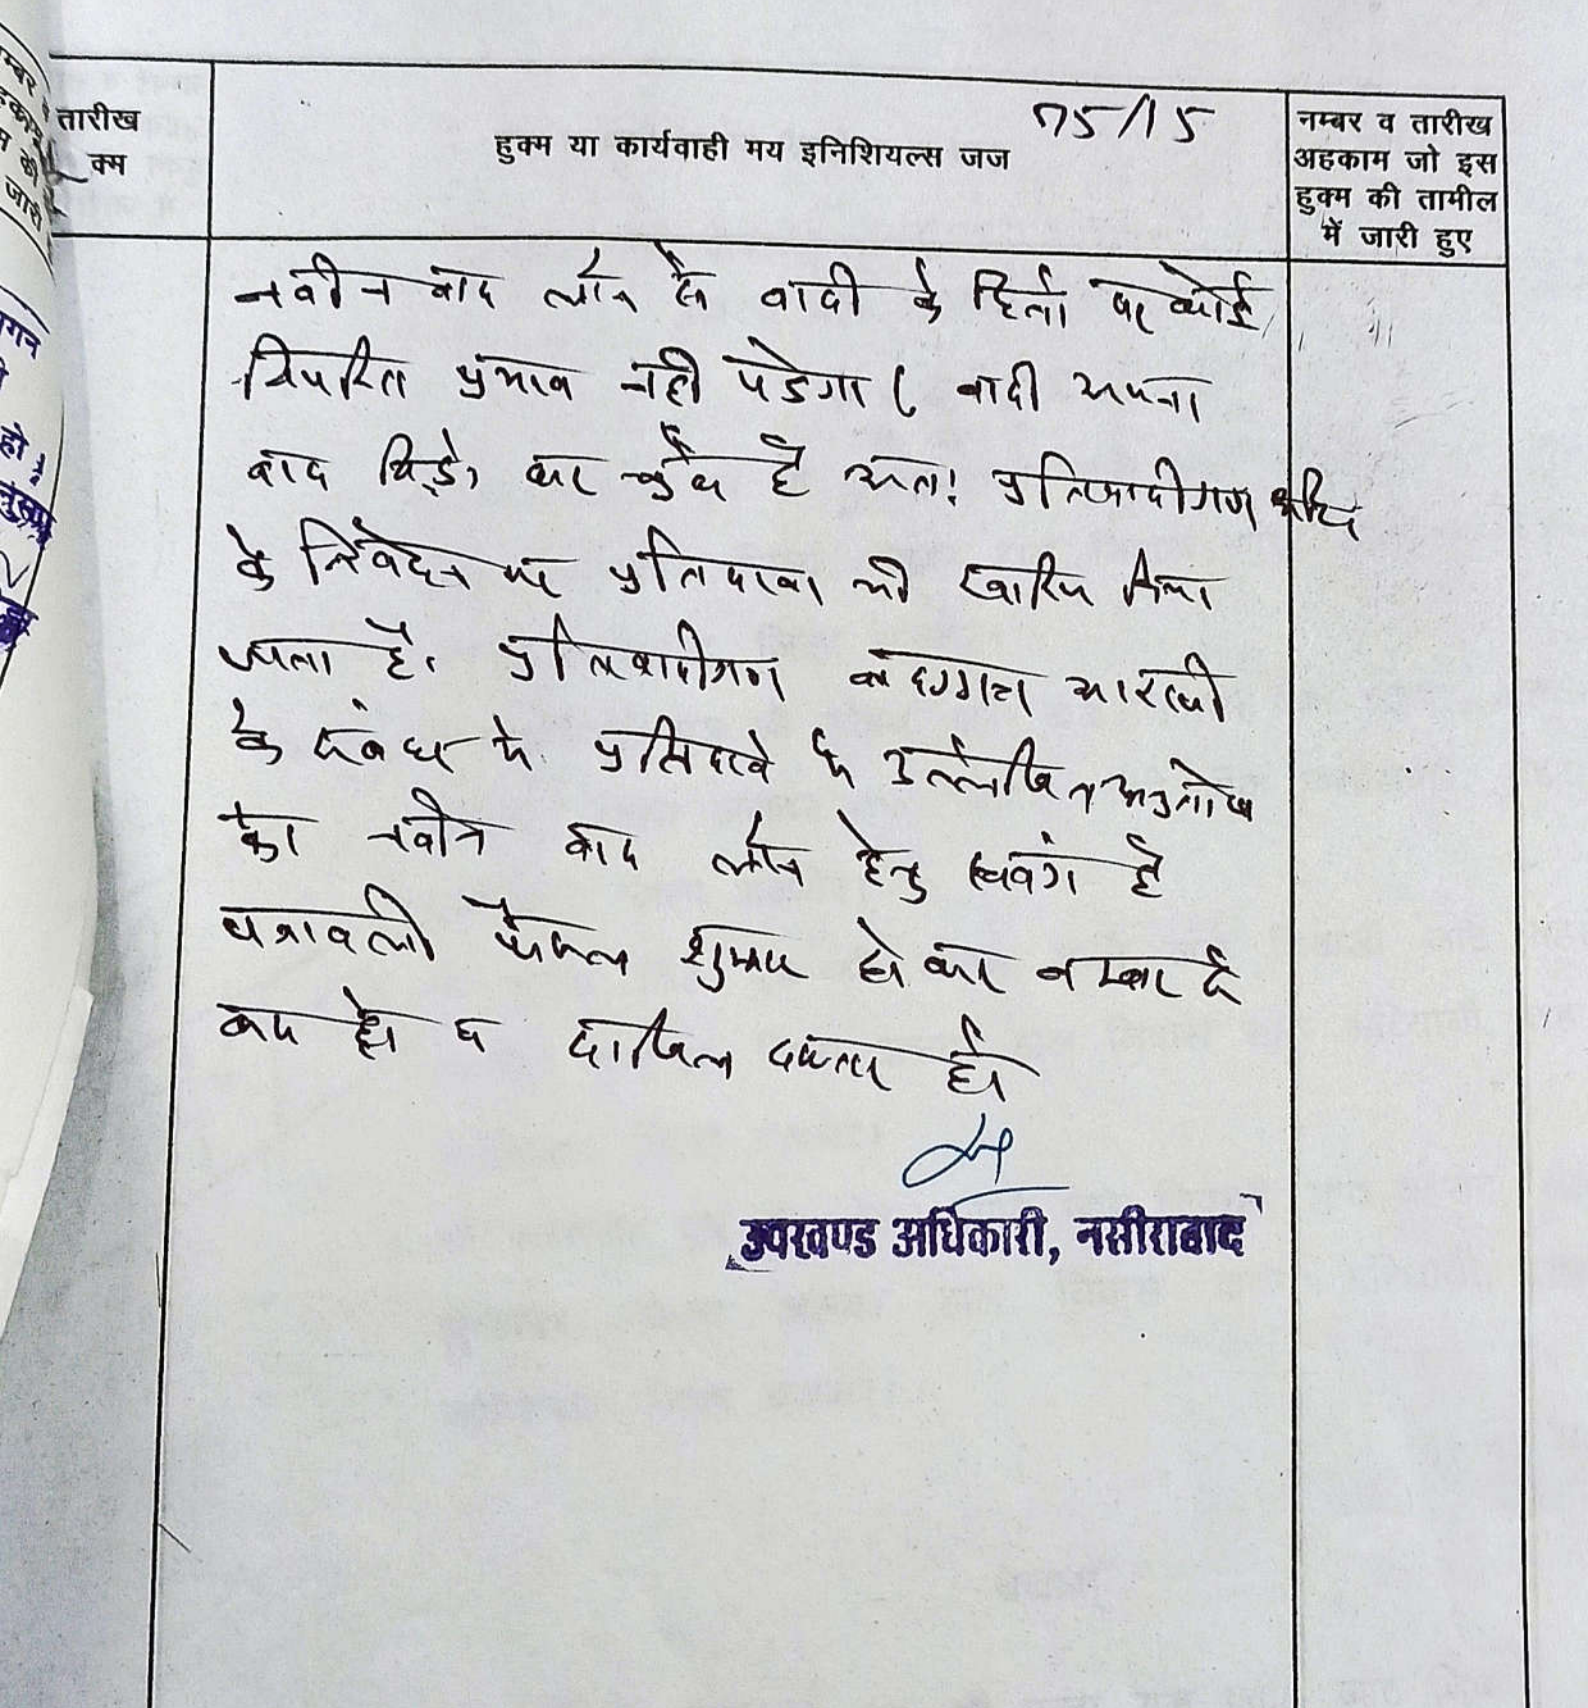 तारीख
क्म
हुक्म या कार्यवाही मय इनिशियल्स जज
75/15
नम्बर व तारीख
अहकाम जो इस
हुक्म की तामील
में जारी हुए
नवीन वाद लाने से वादी के हितो पर कोई
विपरित प्रभाव नही पडेगा। वादी अपना
वाद विड्रो कर चुका है अतः प्रतिवादीगण
के निवेदन पर प्रतिदावा को खारिज किया
जाता है। प्रतिवादीगण वादग्रस्त आराजी
के संबंध मे प्रतिदावे मे उल्लेखित अनुतोष
का नवीन वाद लाने हेतु स्वतंत्र है
पत्रावली फैसल शुमार हो कर नम्बर से
कम हो व दाखिल दफ्तर हो
उपखण्ड अधिकारी, नसीराबाद